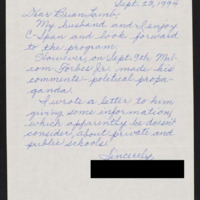 Sept. 23, 1994
Dear Brian Lamb,
My husband and I enjoy
C-Span and look forward
to the program.
However, on Sept. 9th Mal-
com Forbes Jr. made his
comments - political propa-
ganda.
I wrote a letter to him
giving some information,
which apparently he doesn't
consider, about private and
public schools.
Sincerely,